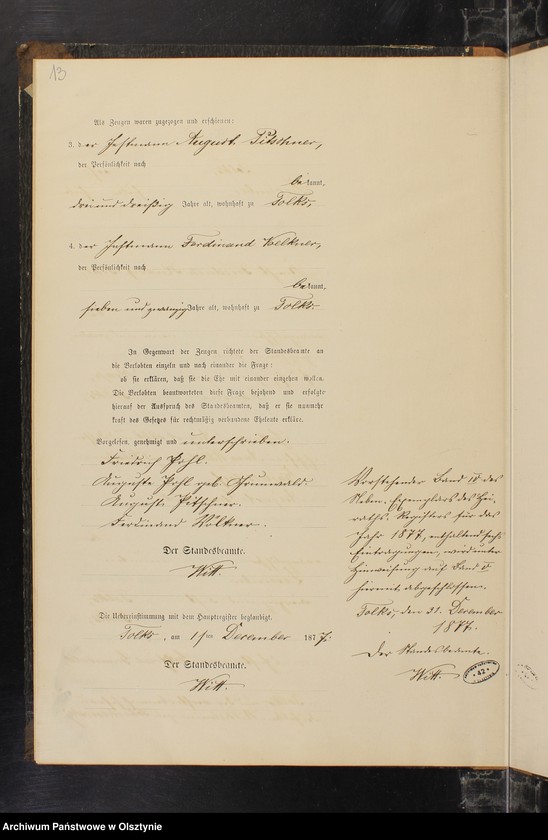 13
Als Zeugen waren zugezogen und erschienen:
3. der Instmann August Pitschner,
der Persönlichkeit nach
bekannt,
drei und dreißig Jahre alt, wohnhaft zu Tolks,
4. der Instmann Ferdinand Volkner,
der Persönlichkeit nach
bekannt,
sieben und zwanzig Jahre alt, wohnhaft zu Tolks.
In Gegenwart der Zeugen richtete der Standesbeamte an
die Verlobten einzeln und nach einander die Frage:
ob sie erklären, daß sie die Ehe mit einander eingehen wollen.
Die Verlobten beantworteten diese Frage bejahend und erfolgte
hierauf der Ausspruch des Standesbeamten, daß er sie nunmehr
kraft des Gesetzes für rechtmäßig verbundene Eheleute erkläre.
Vorgelesen, genehmigt und unterschrieben.
Friedrich Pohl.
Auguste Pohl geb. Grunwald.
August Pitschner.
Ferdinand Volkner.
Der Standesbeamte.
Witt.
Die Uebereinstimmung mit dem Hauptregister beglaubigt.
Tolks, am 1ten December 1877.
Der Standesbeamte.
Witt.
Vorstehender Band II des
Neben-Exemplars des Hei-
raths-Registers für das
Jahr 1877, enthaltend sechs
Eintragungen, wird unter
Hinweisung auf Band
hiermit abgeschlossen.
Tolks, den 31. December
1877.
Der Standesbeamte.
Witt.
42
Archiwum Państwowe w Olsztynie